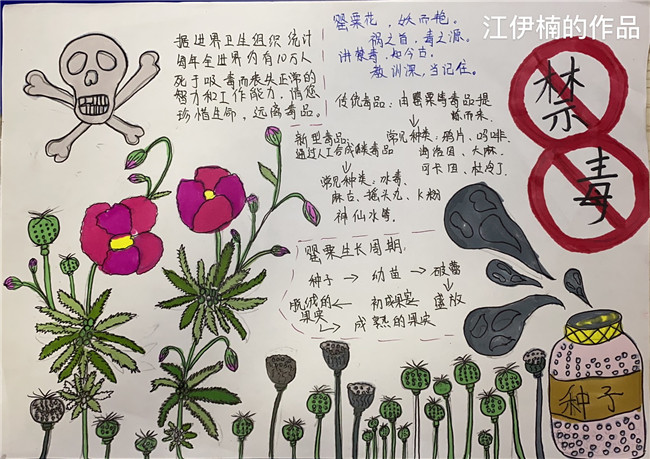 江伊楠的作品
据世界卫生组织统计
每年全世界约有10万人
死于吸毒而丧失正常的
智力和工作能力,请您
珍惜生命,远离毒品。
罂粟花,妖而艳。
祸之首,毒之源。
讲禁毒,如今古。
教训深,当记住。
传统毒品:由罂粟等毒品提
炼而来.
常见种类:鸦片、吗啡、
海洛因、大麻、
可卡因、杜冷丁、
新型毒品:
通过人工合成
常见种类:冰毒、
麻古、摇头丸、K粉
神仙水等.
罂粟生长周期:
种子→幼苗→破蕾
盛放
初成果实
脱绒的
果实
成熟的果实
禁
毒
种子